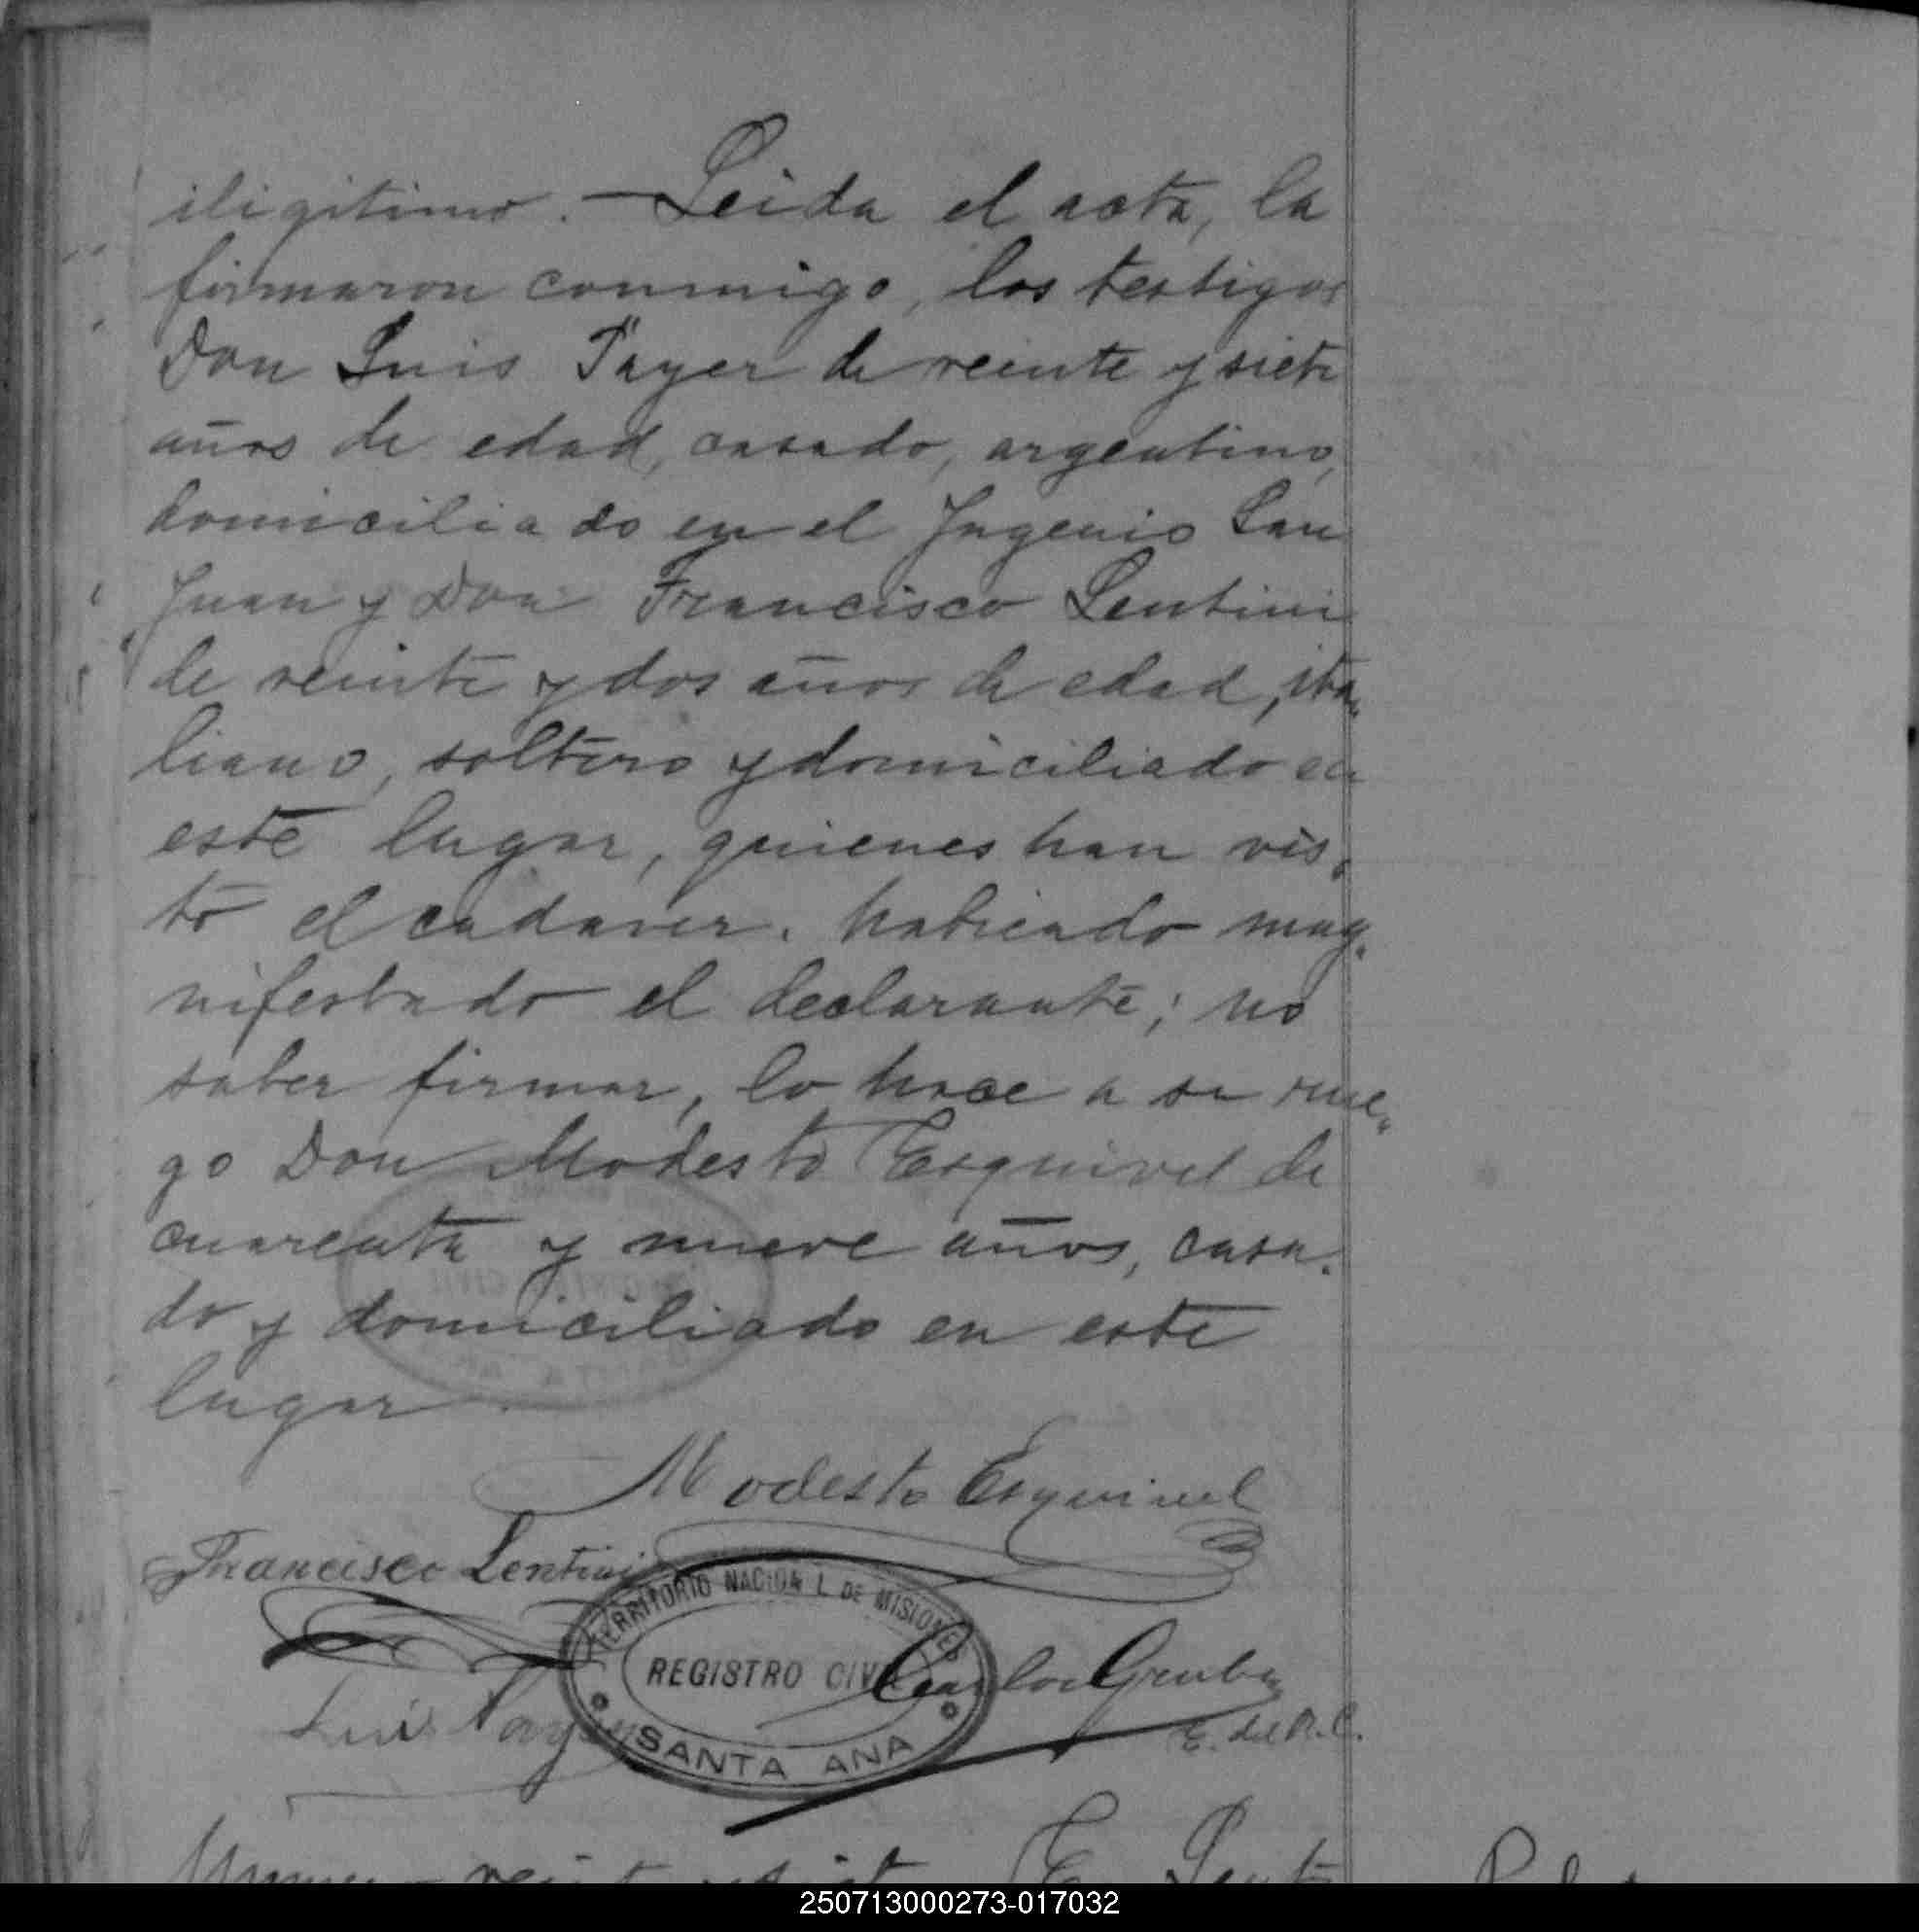 iligitimo. — Leida el acta, la
firmaron conmigo, los testigos
Don Luis Payer de veinte y siete
años de edad, casado, argentino,
domiciliado en el Ingenio San
Juan y Don Francisco Lentini
de veinte y dos años de edad, ita„
liano, soltero y domiciliado en
este lugar, quienes han vis„
to el cadaver. habiendo ma„
nifestado el declarante; no
saber firmar, lo hace a su rue„
go Don Modesto Esquivel de
cuarenta y nueve años, casa„
do y domiciliado en este
lugar.
Modesto Esquivel
Francisco Lentini
TERRITORIO NACIONAL DE MISIONES
REGISTRO CIVIL
SANTA ANA
Carlos
E. del R. C.
Luis Payer
veinte y siete En Santa